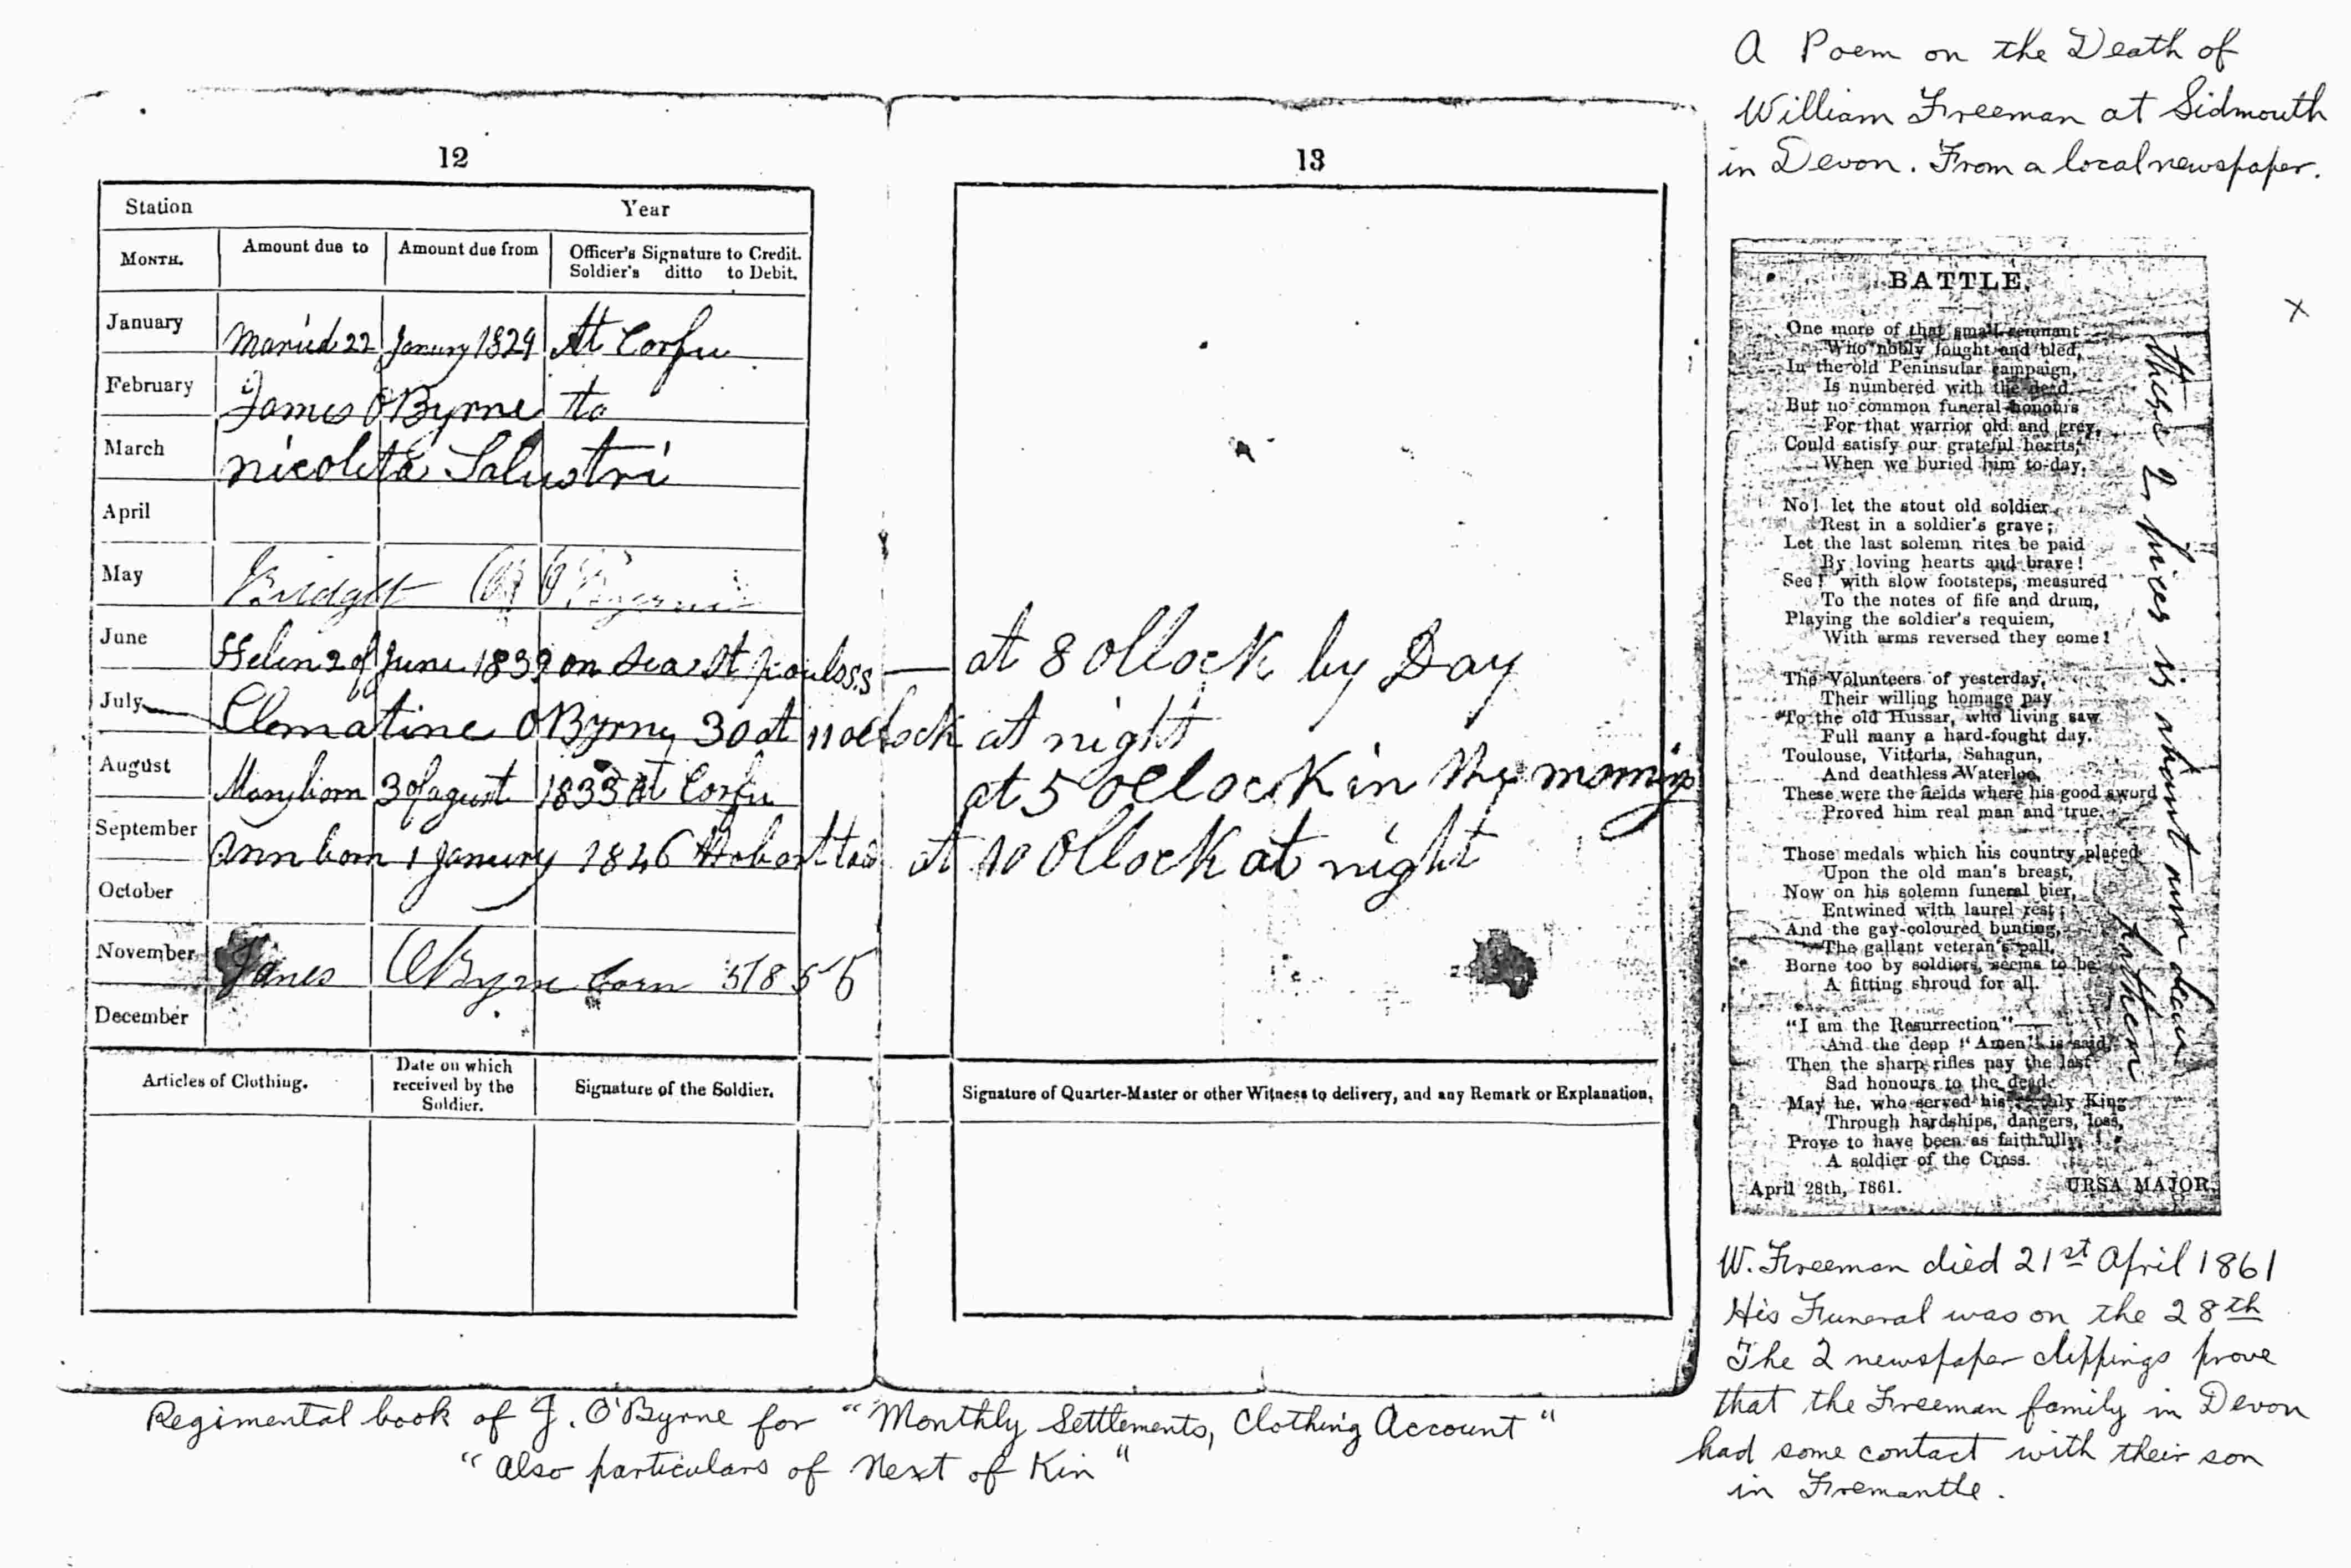 12
Station Year
MONTH. Amount due to Amount due from Officer's Signature to Credit.
Soldier's ditto to Debit.
January Maried 22 Janury 1829 At Corfu
February James O Byrne to
March nicoleta Salustri
April
May Bridget O Byrne
June Helen 2 of June 1839 on Sea St
July Clematine O Byrne 30 at 11 oclock at night
August Mary born 3 of agust 1833 At Corfu
September Ann born 1 Janury 1846 Hobart
October
November James O Byrne born
December
Articles of Clothing. Date on which
received by the
Soldier. Signature of the Soldier.
13
at 8 Ollock by Day
at 5 oclock in the morning
at 10 Ollock at night
Signature of Quarter-Master or other Witness to delivery, and any Remark or Explanation.
Regimental book of J. O'Byrne for "Monthly Settlements, Clothing Account"
"also particulars of Next of Kin"
A Poem on the Death of
William Freeman at Sidmouth
in Devon. From a local newspaper.
BATTLE.
One more of that small remnant
Who nobly fought and bled,
In the old Peninsular campaign,
Is numbered with the dead
But no common funeral honours
For that warrior old and grey,
Could satisfy our grateful hearts,
When we buried him to-day.
No! let the stout old soldier
Rest in a soldier's grave;
Let the last solemn rites be paid
By loving hearts and brave!
See! with slow footsteps, measured
To the notes of fife and drum,
Playing the soldier's requiem,
With arms reversed they come!
The Volunteers of yesterday,
Their willing homage pay
To the old Hussar, who living saw
Full many a hard-fought day.
Toulouse, Vittoria, Sahagun,
And deathless Waterloo,
These were the fields where his good sword
Proved him real man and true.
Those medals which his country placed
Upon the old man's breast,
Now on his solemn funeral bier,
Entwined with laurel rest;
And the gay-coloured bunting,
The gallant veteran's pall,
Borne too by soldiers, seems to be
A fitting shroud for all.
"I am the Resurrection"—
And the deep "Amen" is said,
Then the sharp rifles pay the last
Sad honours to the dead.
May he, who served his King
Through hardships, dangers, loss,
Prove to have been as faithfully,
A soldier of the Cross.
April 28th, 1861. URSA MAJOR.
these 2 pices is about our dear
father
X
W. Freeman died 21st April 1861
His Funeral was on the 28th
The 2 newspaper clippings prove
that the Freeman family in Devon
had some contact with their son
in Fremantle.